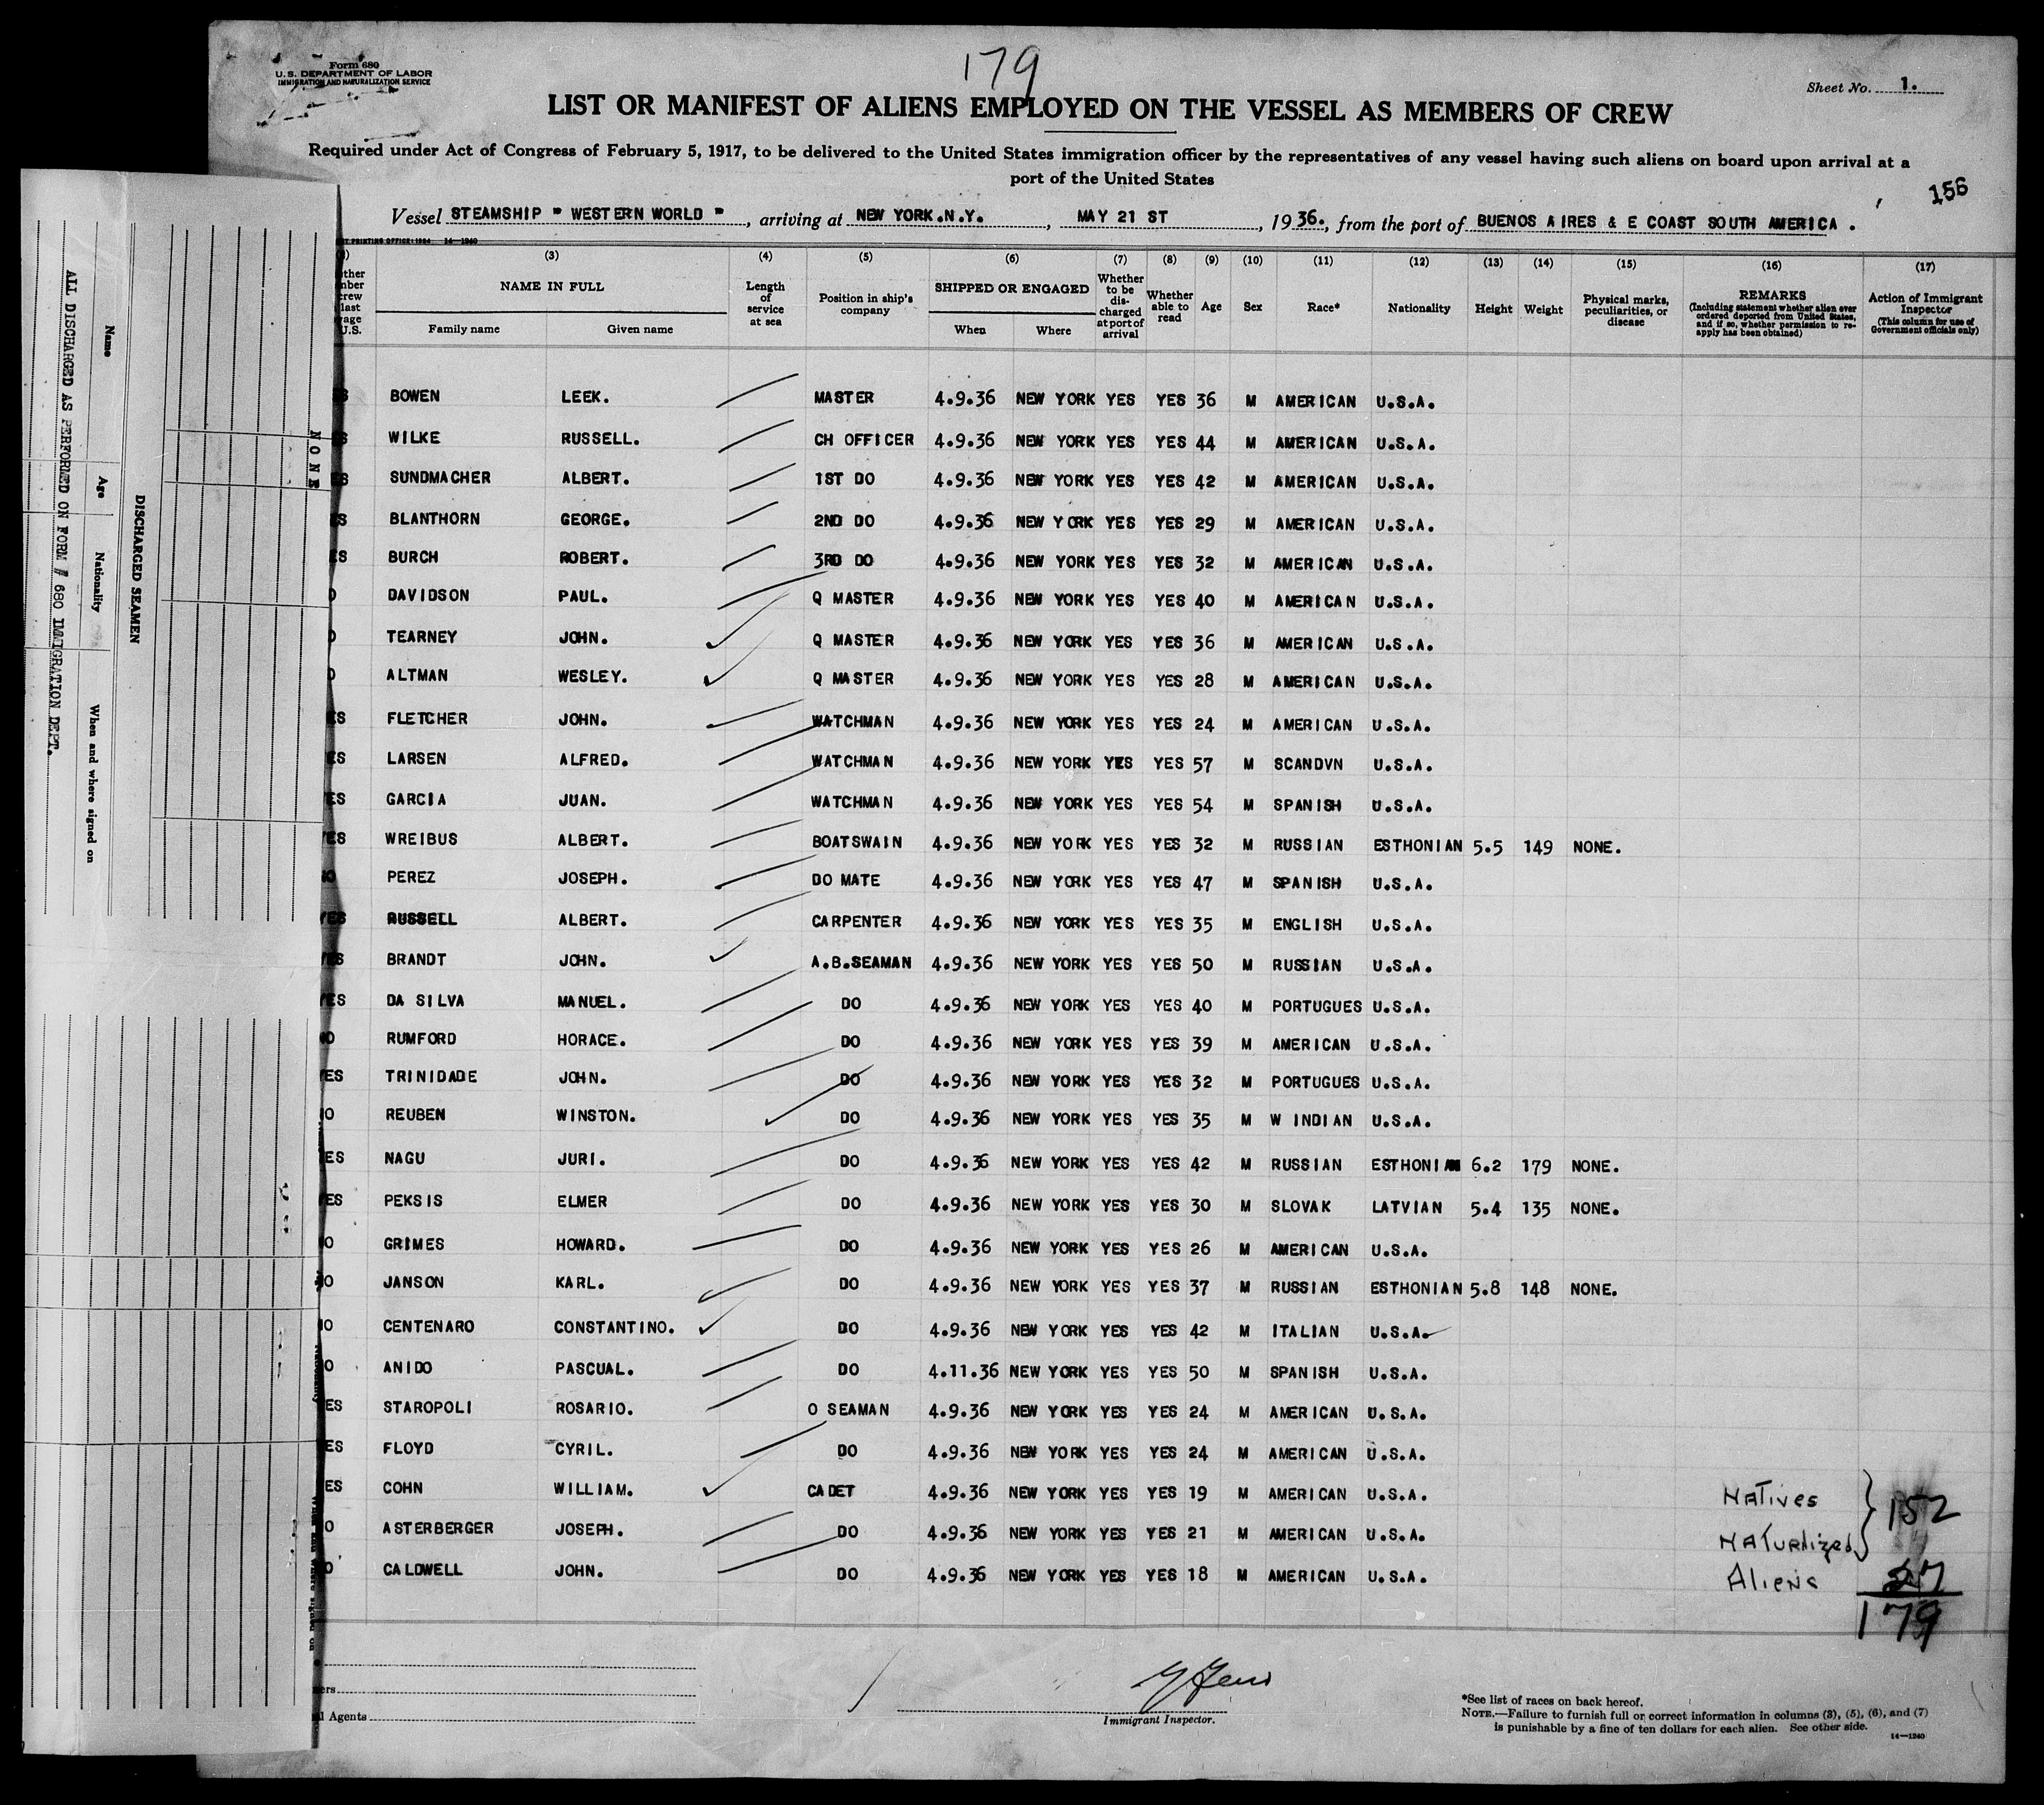 179
Form 680
U.S. DEPARTMENT OF LABOR
IMMIGRATION AND NATURALIZATION SERVICE
Sheet No. 1.
LIST OR MANIFEST OF ALIENS EMPLOYED ON THE VESSEL AS MEMBERS OF CREW
Required under Act of Congress of February 5, 1917, to be delivered to the United States immigration officer by the representatives of any vessel having such aliens on board upon arrival at a
port of the United States
156
Vessel STEAMSHIP " WESTERN WORLD ", arriving at NEW YORK.N.Y., MAY 21 ST, 1936., from the port of BUENOS AIRES & E COAST SOUTH AMERICA .
14—1240
(3) (4) (5) (6) (7) (8) (9) (10) (11) (12) (13) (14) (15) (16) (17)
NAME IN FULL
Family name Given name
Length of service at sea
Position in ship's company
SHIPPED OR ENGAGED
When Where
Whether to be discharged at port of arrival
Whether able to read
Age
Sex
Race*
Nationality
Height
Weight
Physical marks, peculiarities, or disease
REMARKS
(Including statement whether alien ever ordered deported from United States, and if so, whether permission to re-apply has been obtained)
Action of Immigrant Inspector
(This column for use of Government officials only)
BOWEN LEEK. MASTER 4.9.36 NEW YORK YES YES 36 M AMERICAN U.S.A.
WILKE RUSSELL. CH OFFICER 4.9.36 NEW YORK YES YES 44 M AMERICAN U.S.A.
SUNDMACHER ALBERT. 1ST DO 4.9.36 NEW YORK YES YES 42 M AMERICAN U.S.A.
BLANTHORN GEORGE. 2ND DO 4.9.36 NEW YORK YES YES 29 M AMERICAN U.S.A.
BURCH ROBERT. 3RD DO 4.9.36 NEW YORK YES YES 32 M AMERICAN U.S.A.
DAVIDSON PAUL. Q MASTER 4.9.36 NEW YORK YES YES 40 M AMERICAN U.S.A.
TEARNEY JOHN. Q MASTER 4.9.36 NEW YORK YES YES 36 M AMERICAN U.S.A.
ALTMAN WESLEY. Q MASTER 4.9.36 NEW YORK YES YES 28 M AMERICAN U.S.A.
ES FLETCHER JOHN. WATCHMAN 4.9.36 NEW YORK YES YES 24 M AMERICAN U.S.A.
ES LARSEN ALFRED. WATCHMAN 4.9.36 NEW YORK YES YES 57 M SCANDVN U.S.A.
ES GARCIA JUAN. WATCHMAN 4.9.36 NEW YORK YES YES 54 M SPANISH U.S.A.
YES WREIBUS ALBERT. BOATSWAIN 4.9.36 NEW YORK YES YES 32 M RUSSIAN ESTHONIAN 5.5 149 NONE.
NO PEREZ JOSEPH. DO MATE 4.9.36 NEW YORK YES YES 47 M SPANISH U.S.A.
YES RUSSELL ALBERT. CARPENTER 4.9.36 NEW YORK YES YES 35 M ENGLISH U.S.A.
YES BRANDT JOHN. A.B.SEAMAN 4.9.36 NEW YORK YES YES 50 M RUSSIAN U.S.A.
YES DA SILVA MANUEL. DO 4.9.36 NEW YORK YES YES 40 M PORTUGUES U.S.A.
NO RUMFORD HORACE. DO 4.9.36 NEW YORK YES YES 39 M AMERICAN U.S.A.
YES TRINIDADE JOHN. DO 4.9.36 NEW YORK YES YES 32 M PORTUGUES U.S.A.
NO REUBEN WINSTON. DO 4.9.36 NEW YORK YES YES 35 M W INDIAN U.S.A.
ES NAGU JURI. DO 4.9.36 NEW YORK YES YES 42 M RUSSIAN ESTHONIAN 6.2 179 NONE.
ES PEKSIS ELMER DO 4.9.36 NEW YORK YES YES 30 M SLOVAK LATVIAN 5.4 135 NONE.
O GRIMES HOWARD. DO 4.9.36 NEW YORK YES YES 26 M AMERICAN U.S.A.
O JANSON KARL. DO 4.9.36 NEW YORK YES YES 37 M RUSSIAN ESTHONIAN 5.8 148 NONE.
O CENTENARO CONSTANTINO. DO 4.9.36 NEW YORK YES YES 42 M ITALIAN U.S.A.
O ANIDO PASCUAL. DO 4.11.36 NEW YORK YES YES 50 M SPANISH U.S.A.
ES STAROPOLI ROSARIO. O SEAMAN 4.9.36 NEW YORK YES YES 24 M AMERICAN U.S.A.
ES FLOYD CYRIL. DO 4.9.36 NEW YORK YES YES 24 M AMERICAN U.S.A.
ES COHN WILLIAM. CADET 4.9.36 NEW YORK YES YES 19 M AMERICAN U.S.A.
O ASTERBERGER JOSEPH. DO 4.9.36 NEW YORK YES YES 21 M AMERICAN U.S.A.
O CALDWELL JOHN. DO 4.9.36 NEW YORK YES YES 18 M AMERICAN U.S.A.
Natives
Naturalized } 152
Aliens 27
179
Agents
Immigrant Inspector.
*See list of races on back hereof.
NOTE.—Failure to furnish full or correct information in columns (3), (5), (6), and (7)
is punishable by a fine of ten dollars for each alien. See other side.
14—1240
DISCHARGED SEAMEN
Name Age Nationality When and where signed on
ALL DISCHARGED AS PERFORMED ON FORM # 680 IMMIGRATION DEPT.
NONE